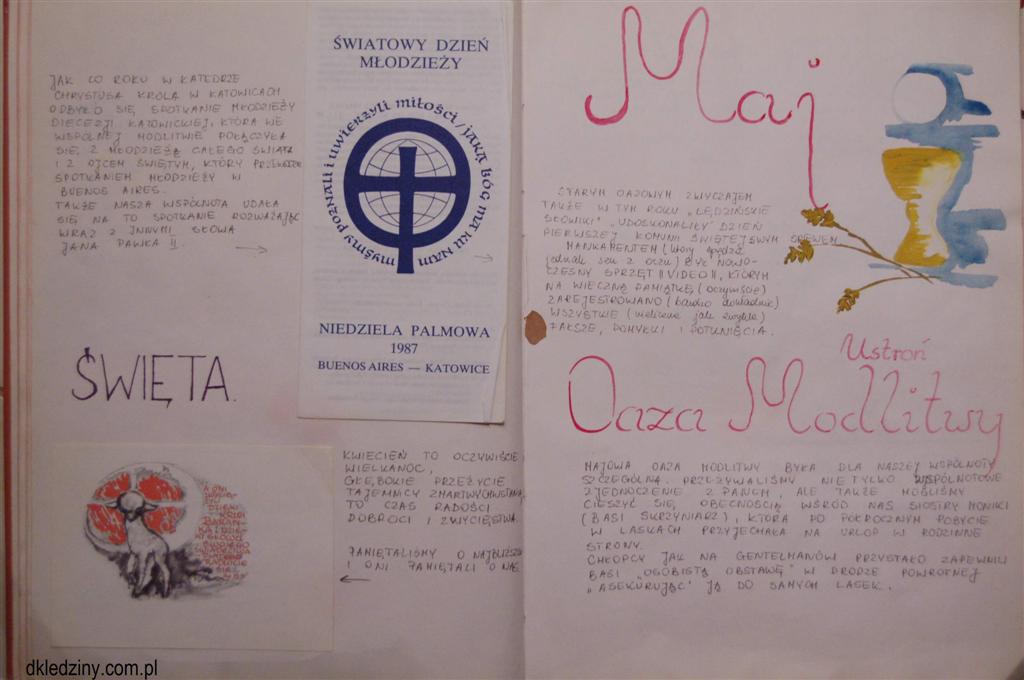 JAK CO ROKU W KATEDRZE
CHRYSTUSA KRÓLA W KATOWICACH
ODBYŁO SIĘ SPOTKANIE MŁODZIEŻY
DIECEZJI KATOWICKIEJ, KTÓRA WE
WSPÓLNEJ MODLITWIE POŁĄCZYŁA
SIĘ Z MŁODZIEŻĄ CAŁEGO ŚWIATA
I Z OJCEM ŚWIĘTYM, KTÓRY
SPOTKANIEM MŁODZIEŻY W
BUENOS AIRES.
TAKŻE NASZA WSPÓLNOTA UDAŁA
SIĘ NA TO SPOTKANIE ROZWAŻAJĄC
WRAZ Z INNYMI SŁOWA
JANA PAWŁA II.
ŚWIATOWY DZIEŃ
MŁODZIEŻY
myśmy poznali i uwierzyli miłości / jaką bóg ma ku nam
NIEDZIELA PALMOWA
1987
BUENOS AIRES — KATOWICE
ŚWIĘTA.
KWIECIEŃ TO OCZYWIŚCIE
WIELKANOC,
GŁĘBOKIE PRZEŻYCIE
TAJEMNICY ZMARTWYCHWSTANIA,
TO CZAS RADOŚCI
DOBROCI I ZWYCIĘSTWA.
PAMIĘTALIŚMY O NAJBLIŻSZYCH
I ONI PAMIĘTALI O NAS.
A ONI
ZWYCIĘ-
ŻYLI
DZIĘKI
KRWI
BARAN-
KA I DZIĘ-
KI SŁOWU
dkledziny.com.pl
Maj
STARYM OAZOWYM ZWYCZAJEM
TAKŻE W TYM ROKU „LĘDZIŃSKIE
SŁOWIKI" „UDOSKONALIŁY" DZIEŃ
PIERWSZEJ KOMUNII ŚWIĘTEJ SWYM ŚPIEWEM.
MANKAMENTEM (który spędzał
jednak sen z oczu) BYŁ NOWO-
CZESNY SPRZĘT "VIDEO", KTÓRYM
NA WIECZNĄ PAMIĄTKĘ (oczywiście)
ZAREJESTROWANO (bardzo dokładnie)
WSZYSTKIE (nieliczne jak zwykle)
FAŁSZE, POMYŁKI I POTKNIĘCIA.
Ustroń
Oaza Modlitwy
MAJOWA OAZA MODLITWY BYŁA DLA NASZEJ WSPÓLNOTY
SZCZEGÓLNA. PRZEŻYWALIŚMY NIE TYLKO WSPÓLNOTOWE
ZJEDNOCZENIE Z PANEM, ALE TAKŻE MOGLIŚMY
CIESZYĆ SIĘ OBECNOŚCIĄ WŚRÓD NAS SIOSTRY MONIKI
(BASI SKRZYNIARZ), KTÓRA PO PÓŁROCZNYM POBYCIE
W LASKACH PRZYJECHAŁA NA URLOP W RODZINNE
STRONY.
CHŁOPCY JAK NA GENTELMANÓW PRZYSTAŁO ZAPEWNILI
BASI „OSOBISTĄ OBSTAWĘ" W DRODZE POWROTNEJ
„ASEKURUJĄC" JĄ DO SAMYCH LASEK.